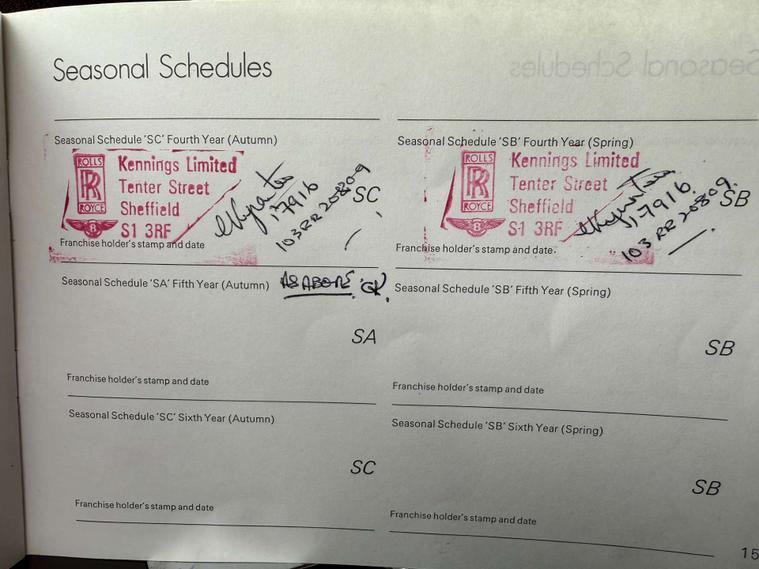 Seasonal Schedules
Seasonal Schedule 'SC' Fourth Year (Autumn)
ROLLS
RR
ROYCE
B
Kennings Limited
Tenter Street
Sheffield
S1 3RF
17916
103RR20809
SC
Franchise holder's stamp and date
Seasonal Schedule 'SB' Fourth Year (Spring)
ROLLS
RR
ROYCE
B
Kennings Limited
Tenter Street
Sheffield
S1 3RF
17916.
103RR20809.
SB
Franchise holder's stamp and date.
Seasonal Schedule 'SA' Fifth Year (Autumn) AS ABOVE
SA
Franchise holder's stamp and date
Seasonal Schedule 'SB' Fifth Year (Spring)
SB
Franchise holder's stamp and date
Seasonal Schedule 'SC' Sixth Year (Autumn)
SC
Franchise holder's stamp and date
Seasonal Schedule 'SB' Sixth Year (Spring)
SB
Franchise holder's stamp and date
15